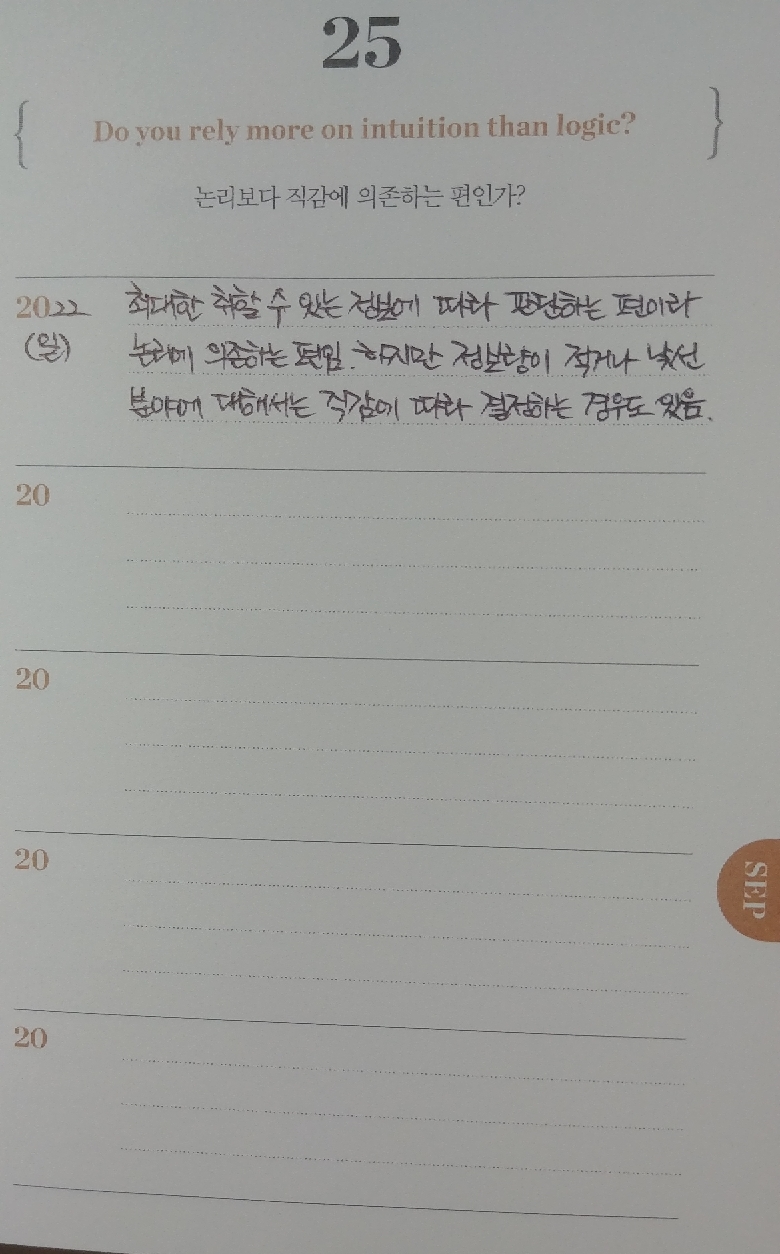 25
{ Do you rely more on intuition than logic? }
논리보다 직감에 의존하는 편인가?
2022 최대한 취할 수 있는 정보에 따라 판단하는 편이라
(일) 논리에 의존하는 편임. 하지만 정보량이 적거나 낯선
분야에 대해서는 직감에 따라 결정하는 경우도 있음.
20
20
SEP
20
20